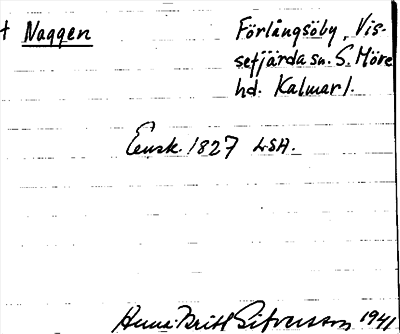 † Naggen Förlångsöby, Vis-
sefjärda sn. S. Möre
hd. Kalmar l.
Ensk. 1827 LSA.
Anna-Britt Sifversson 1941